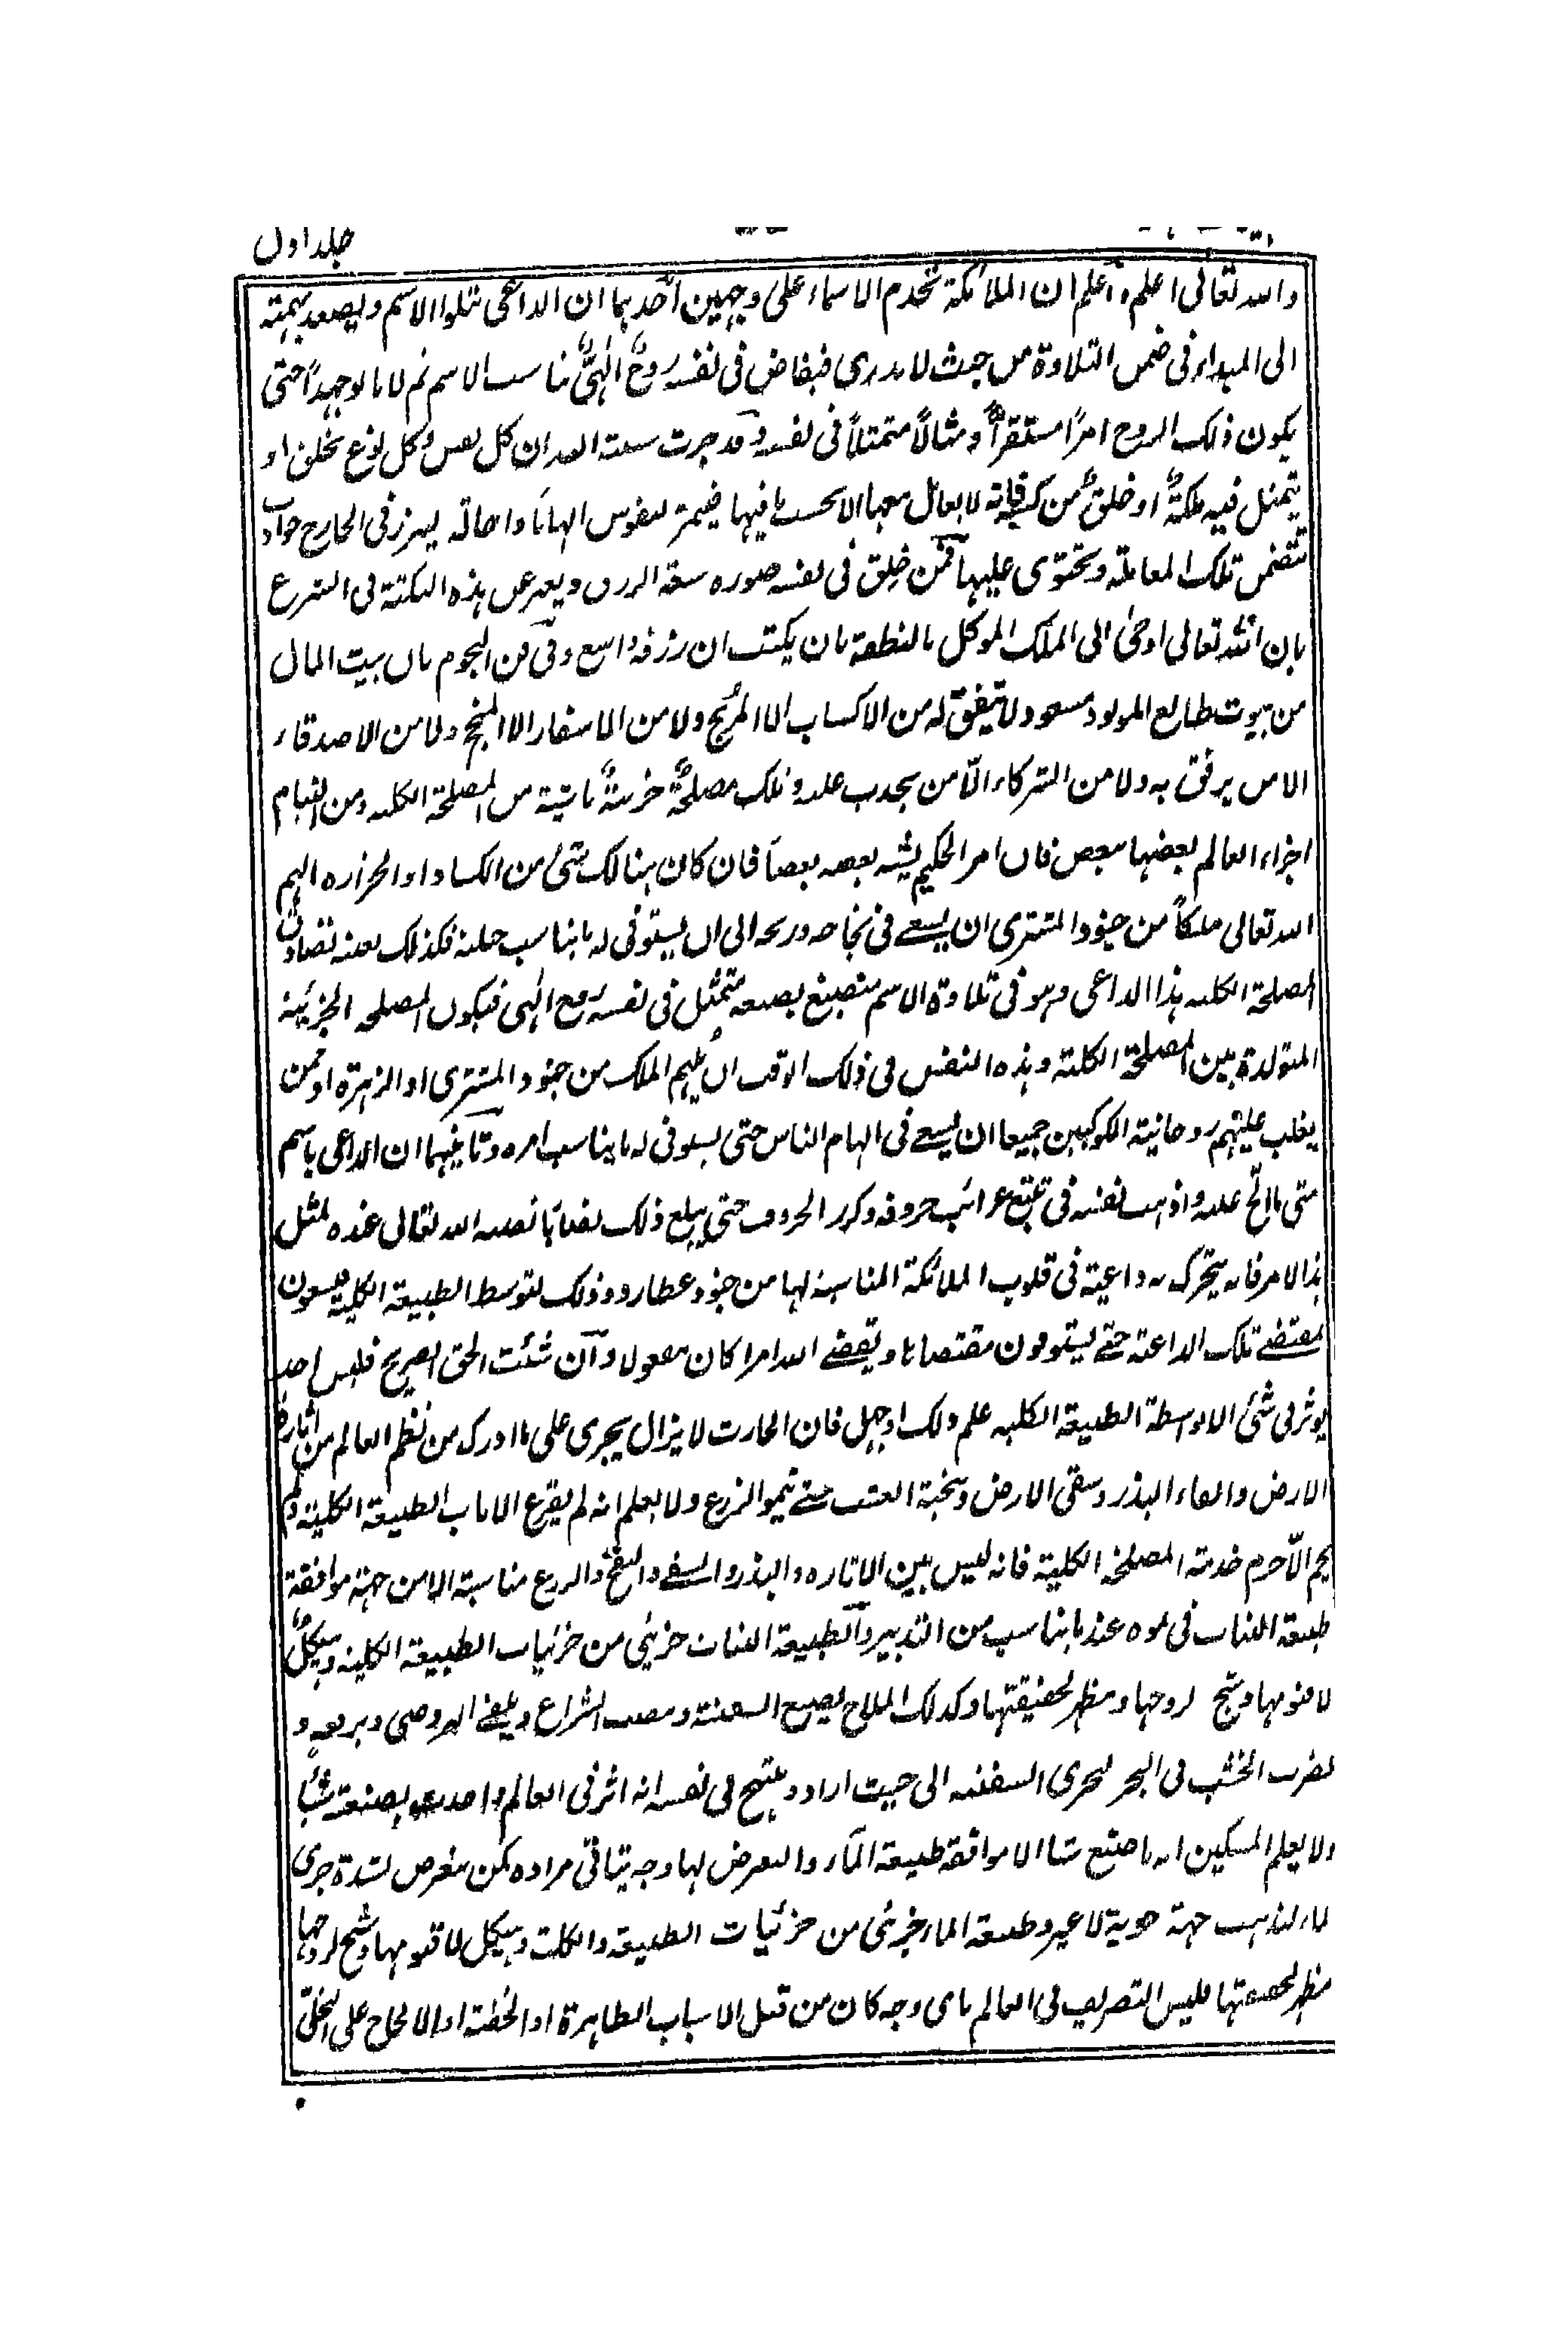 جلد اول
والله تعالى اعلم واعلم ان الملائكة تخدم الاسماء على وجهين احدهما ان الداعى يتلوا الاسم ويصعد بهمته
الى المبداء فى ضمن التلاوة من حيث لا يدرى فيفاض فى نفسه روح الٰهى يناسب الاسم ثم لا يالو جهدًا حتى
يكون ذلك الروح امرًا مستقرًا ومثالًا متمثلًا فى نفسه وقد جرت سنة الله ان كل نفس وكل نوع يخلق او
يتمثل فيه ملكة او خلق من كيفياته لا يعامل معها الا بحسب ما فيها النفوس الهامًا واحالة يبرز فى الخارج حوادث
تتضمن تلك المعاملة وتحتوى عليها فمن خلق فى نفسه صورة سعة الرزق ويعبر عن هذه النكتة فى الشرع
بان الله تعالى اوحى الى الملك الموكل بالنطفة بان يكتب ان رزقه واسع وفى فن النجوم بان بيت المال
من بيوت طالع المولود مسعود لا يتفق له من الاكساب الا المربح ولا من الاسفار الا المنجح ولا من الاصدقاء
الا من يرفق به ولا من الشركاء الّا من يحدب عليه وتلك مصلحة جزئية ناشية من المصلحة الكلية ومن القيام
اجزاء العالم بعضها ببعض فان امر الحكيم يشبه بعضه بعضًا فان كان هنالك شئ من الكساد او الحزازة الهم
الله تعالى ملكًا من جنود المشترى ان يسعى فى نجاحه وربحه الى ان يستوفى له ما يناسب جبلته فكذلك بعينه تصادف
المصلحة الكلية هذا الداعى وهو فى تلاوة الاسم منصبغ بصبغه متمثل فى نفسه روح الٰهى فيكون المصلحة الجزئية
المتولدة بين المصلحة الكلية وهذه النفس فى ذلك الوقت ان يلهم الملك من جنود المشترى او الزهرة او ممن
يغلب عليهم روحانية الكوكبين جميعا ان يسعى فى الهام الناس حتى يستوفى له ما يناسب امره وثانيهما ان الداعى باسم
متى ما الحّ عليه واذهب نفسه فى تتبع غرائب حروفه وكرر الحروف حتى يبلغ ذلك نصابًا نصبه الله تعالى عنده لمثل
هذا الامر فانه يتحرك به داعية فى قلوب الملائكة المناسبة لها من جنود عطارد وذلك بتوسط الطبيعة الكلية فيسعون
بمقتضى تلك الداعية حتى يستوفون مقتضاها ويقضى الله امرا كان مفعولا وان شئت الحق الصريح فليس احد
يوثر فى شئ الا بواسطة الطبيعة الكلية علم ذلك او جهل فان الحارث لا يزال يجرى على ما ادرك من نظم العالم من اثارة
الارض والقاء البذر وسقى الارض وتنحية العشب حتى ينمو الزرع ولا يعلم انه لم يقرع الا باب الطبيعة الكلية ولم
يحم الّا حرم خدمة المصلحة الكلية فانه ليس بين الاثارة والبذر والسقى والزرع مناسبة الا من جهة موافقة
طبيعة النبات فى نموه عند ما يناسب من التدبير والطبيعة النبات جزئى من جزئيات الطبيعة الكلية وهيكل
لاقنومها وشبح لروحها ومظهر لحقيقتها وكذلك الملاح يصنع السفينة وينصب الشراع ويلقى و
يضرب الخشب فى البحر ليجرى السفينة الى حيث اراد ويتبجح فى نفسه انه اثر فى العالم بصنعته شيئًا
ولا يعلم المسكين انه ما صنع شيئا الا موافقة طبيعة الماء والتعرض لها وجه ينافى مراده كمن يتعرض لشدة جرى
الماء لتذهب جهة جرية لا غير وطبيعة الماء جزئى من جزئيات الطبيعة والكلية وهيكل لاقنومها وشبح لروحها
مظهر لحقيقتها فليس التصريف فى العالم باى وجه كان من قبل الاسباب الظاهرة او الخفية او الالحاح على التجلى